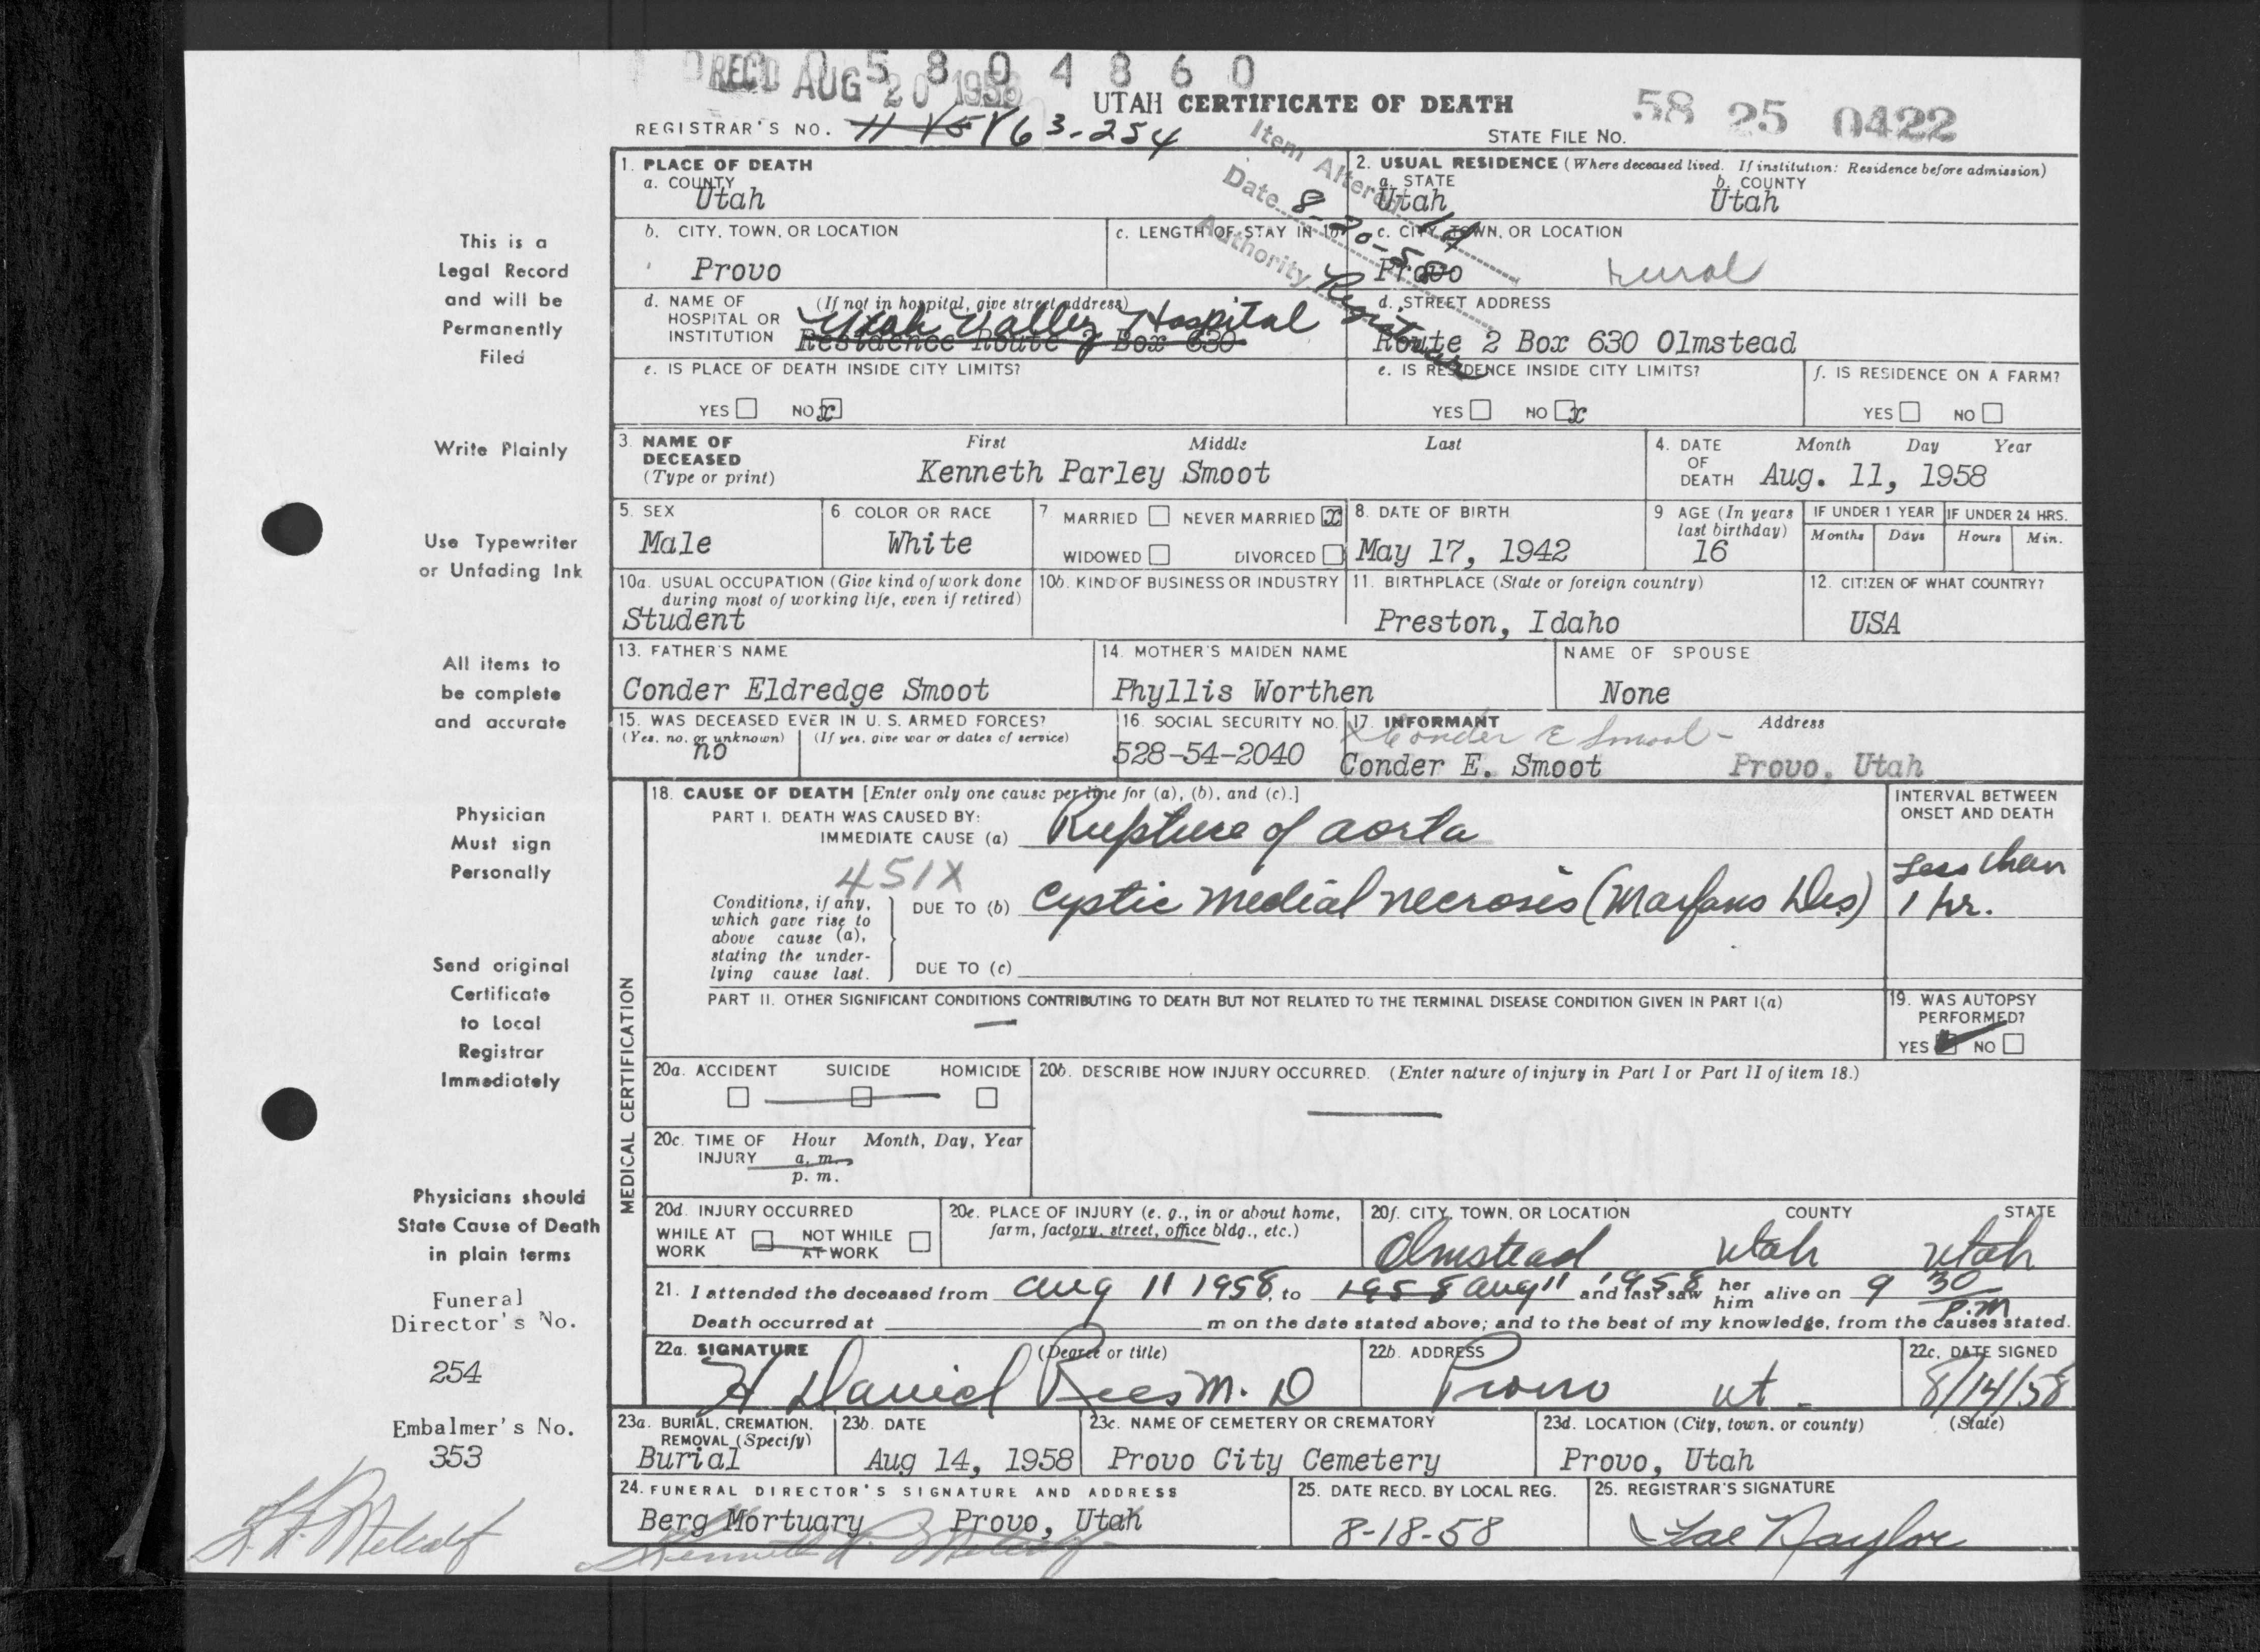 REC'D AUG 20 1958
0 5 8 0 4 8 6 0
UTAH CERTIFICATE OF DEATH
58 25 0422
REGISTRAR'S NO. 163-254
STATE FILE NO.
Item Altered 1d
Date 8-20-58
Authority Registrar
1. PLACE OF DEATH
a. COUNTY
Utah
2. USUAL RESIDENCE (Where deceased lived. If institution: Residence before admission)
a. STATE
b. COUNTY
Utah
Utah
b. CITY, TOWN, OR LOCATION
c. LENGTH OF STAY IN 1b
c. CITY, TOWN, OR LOCATION
Provo
Provo
rural
d. NAME OF HOSPITAL OR INSTITUTION
(If not in hospital, give street address)
Utah Valley Hospital
Residence Route 2 Box 630
d. STREET ADDRESS
Route 2 Box 630 Olmstead
e. IS PLACE OF DEATH INSIDE CITY LIMITS?
YES NO x
e. IS RESIDENCE INSIDE CITY LIMITS?
YES NO x
f. IS RESIDENCE ON A FARM?
YES NO
3. NAME OF DECEASED
(Type or print)
First Middle Last
Kenneth Parley Smoot
4. DATE OF DEATH
Month Day Year
Aug. 11, 1958
5. SEX
Male
6. COLOR OR RACE
White
7 MARRIED NEVER MARRIED x
WIDOWED DIVORCED
8. DATE OF BIRTH
May 17, 1942
9 AGE (In years last birthday)
16
IF UNDER 1 YEAR
Months Days
IF UNDER 24 HRS.
Hours Min.
10a. USUAL OCCUPATION (Give kind of work done
during most of working life, even if retired)
Student
10b. KIND OF BUSINESS OR INDUSTRY
11. BIRTHPLACE (State or foreign country)
Preston, Idaho
12. CITIZEN OF WHAT COUNTRY?
USA
13. FATHER'S NAME
Conder Eldredge Smoot
14. MOTHER'S MAIDEN NAME
Phyllis Worthen
NAME OF SPOUSE
None
15. WAS DECEASED EVER IN U. S. ARMED FORCES?
(Yes, no, or unknown) (If yes, give war or dates of service)
no
16. SOCIAL SECURITY NO.
528-54-2040
17. INFORMANT Address
x Conder E Smoot -
Conder E. Smoot Provo, Utah
MEDICAL CERTIFICATION
18. CAUSE OF DEATH [Enter only one cause per line for (a), (b), and (c).]
PART I. DEATH WAS CAUSED BY:
IMMEDIATE CAUSE (a) Rupture of aorta
451X
Conditions, if any,
which gave rise to
above cause (a),
stating the under-
lying cause last.
DUE TO (b) Cystic medial necrosis (Marfans Dis)
DUE TO (c)
INTERVAL BETWEEN
ONSET AND DEATH
Less than
1 hr.
PART II. OTHER SIGNIFICANT CONDITIONS CONTRIBUTING TO DEATH BUT NOT RELATED TO THE TERMINAL DISEASE CONDITION GIVEN IN PART I(a)
—
19. WAS AUTOPSY
PERFORMED?
YES NO
20a. ACCIDENT SUICIDE HOMICIDE
20b. DESCRIBE HOW INJURY OCCURRED. (Enter nature of injury in Part I or Part II of item 18.)
20c. TIME OF INJURY
Hour Month, Day, Year
a. m.
p. m.
20d. INJURY OCCURRED
WHILE AT WORK
NOT WHILE AT WORK
20e. PLACE OF INJURY (e. g., in or about home,
farm, factory, street, office bldg., etc.)
20f. CITY, TOWN, OR LOCATION COUNTY STATE
Olmstead Utah Utah
21. I attended the deceased from Aug 11 1958, to 1958 Aug 11 1958 and last saw her him alive on 9 30 P.M
Death occurred at m on the date stated above; and to the best of my knowledge, from the causes stated.
22a. SIGNATURE (Degree or title)
H Daniel Rees M. D
22b. ADDRESS
Provo ut -
22c. DATE SIGNED
8/14/58
23a. BURIAL, CREMATION,
REMOVAL (Specify)
Burial
23b. DATE
Aug 14, 1958
23c. NAME OF CEMETERY OR CREMATORY
Provo City Cemetery
23d. LOCATION (City, town, or county) (State)
Provo, Utah
24. FUNERAL DIRECTOR'S SIGNATURE AND ADDRESS
Berg Mortuary Provo, Utah
25. DATE RECD. BY LOCAL REG.
8-18-58
26. REGISTRAR'S SIGNATURE
Fae Naylor
This is a
Legal Record
and will be
Permanently
Filed
Write Plainly
Use Typewriter
or Unfading Ink
All items to
be complete
and accurate
Physician
Must sign
Personally
Send original
Certificate
to Local
Registrar
Immediately
Physicians should
State Cause of Death
in plain terms
Funeral
Director's No.
254
Embalmer's No.
353